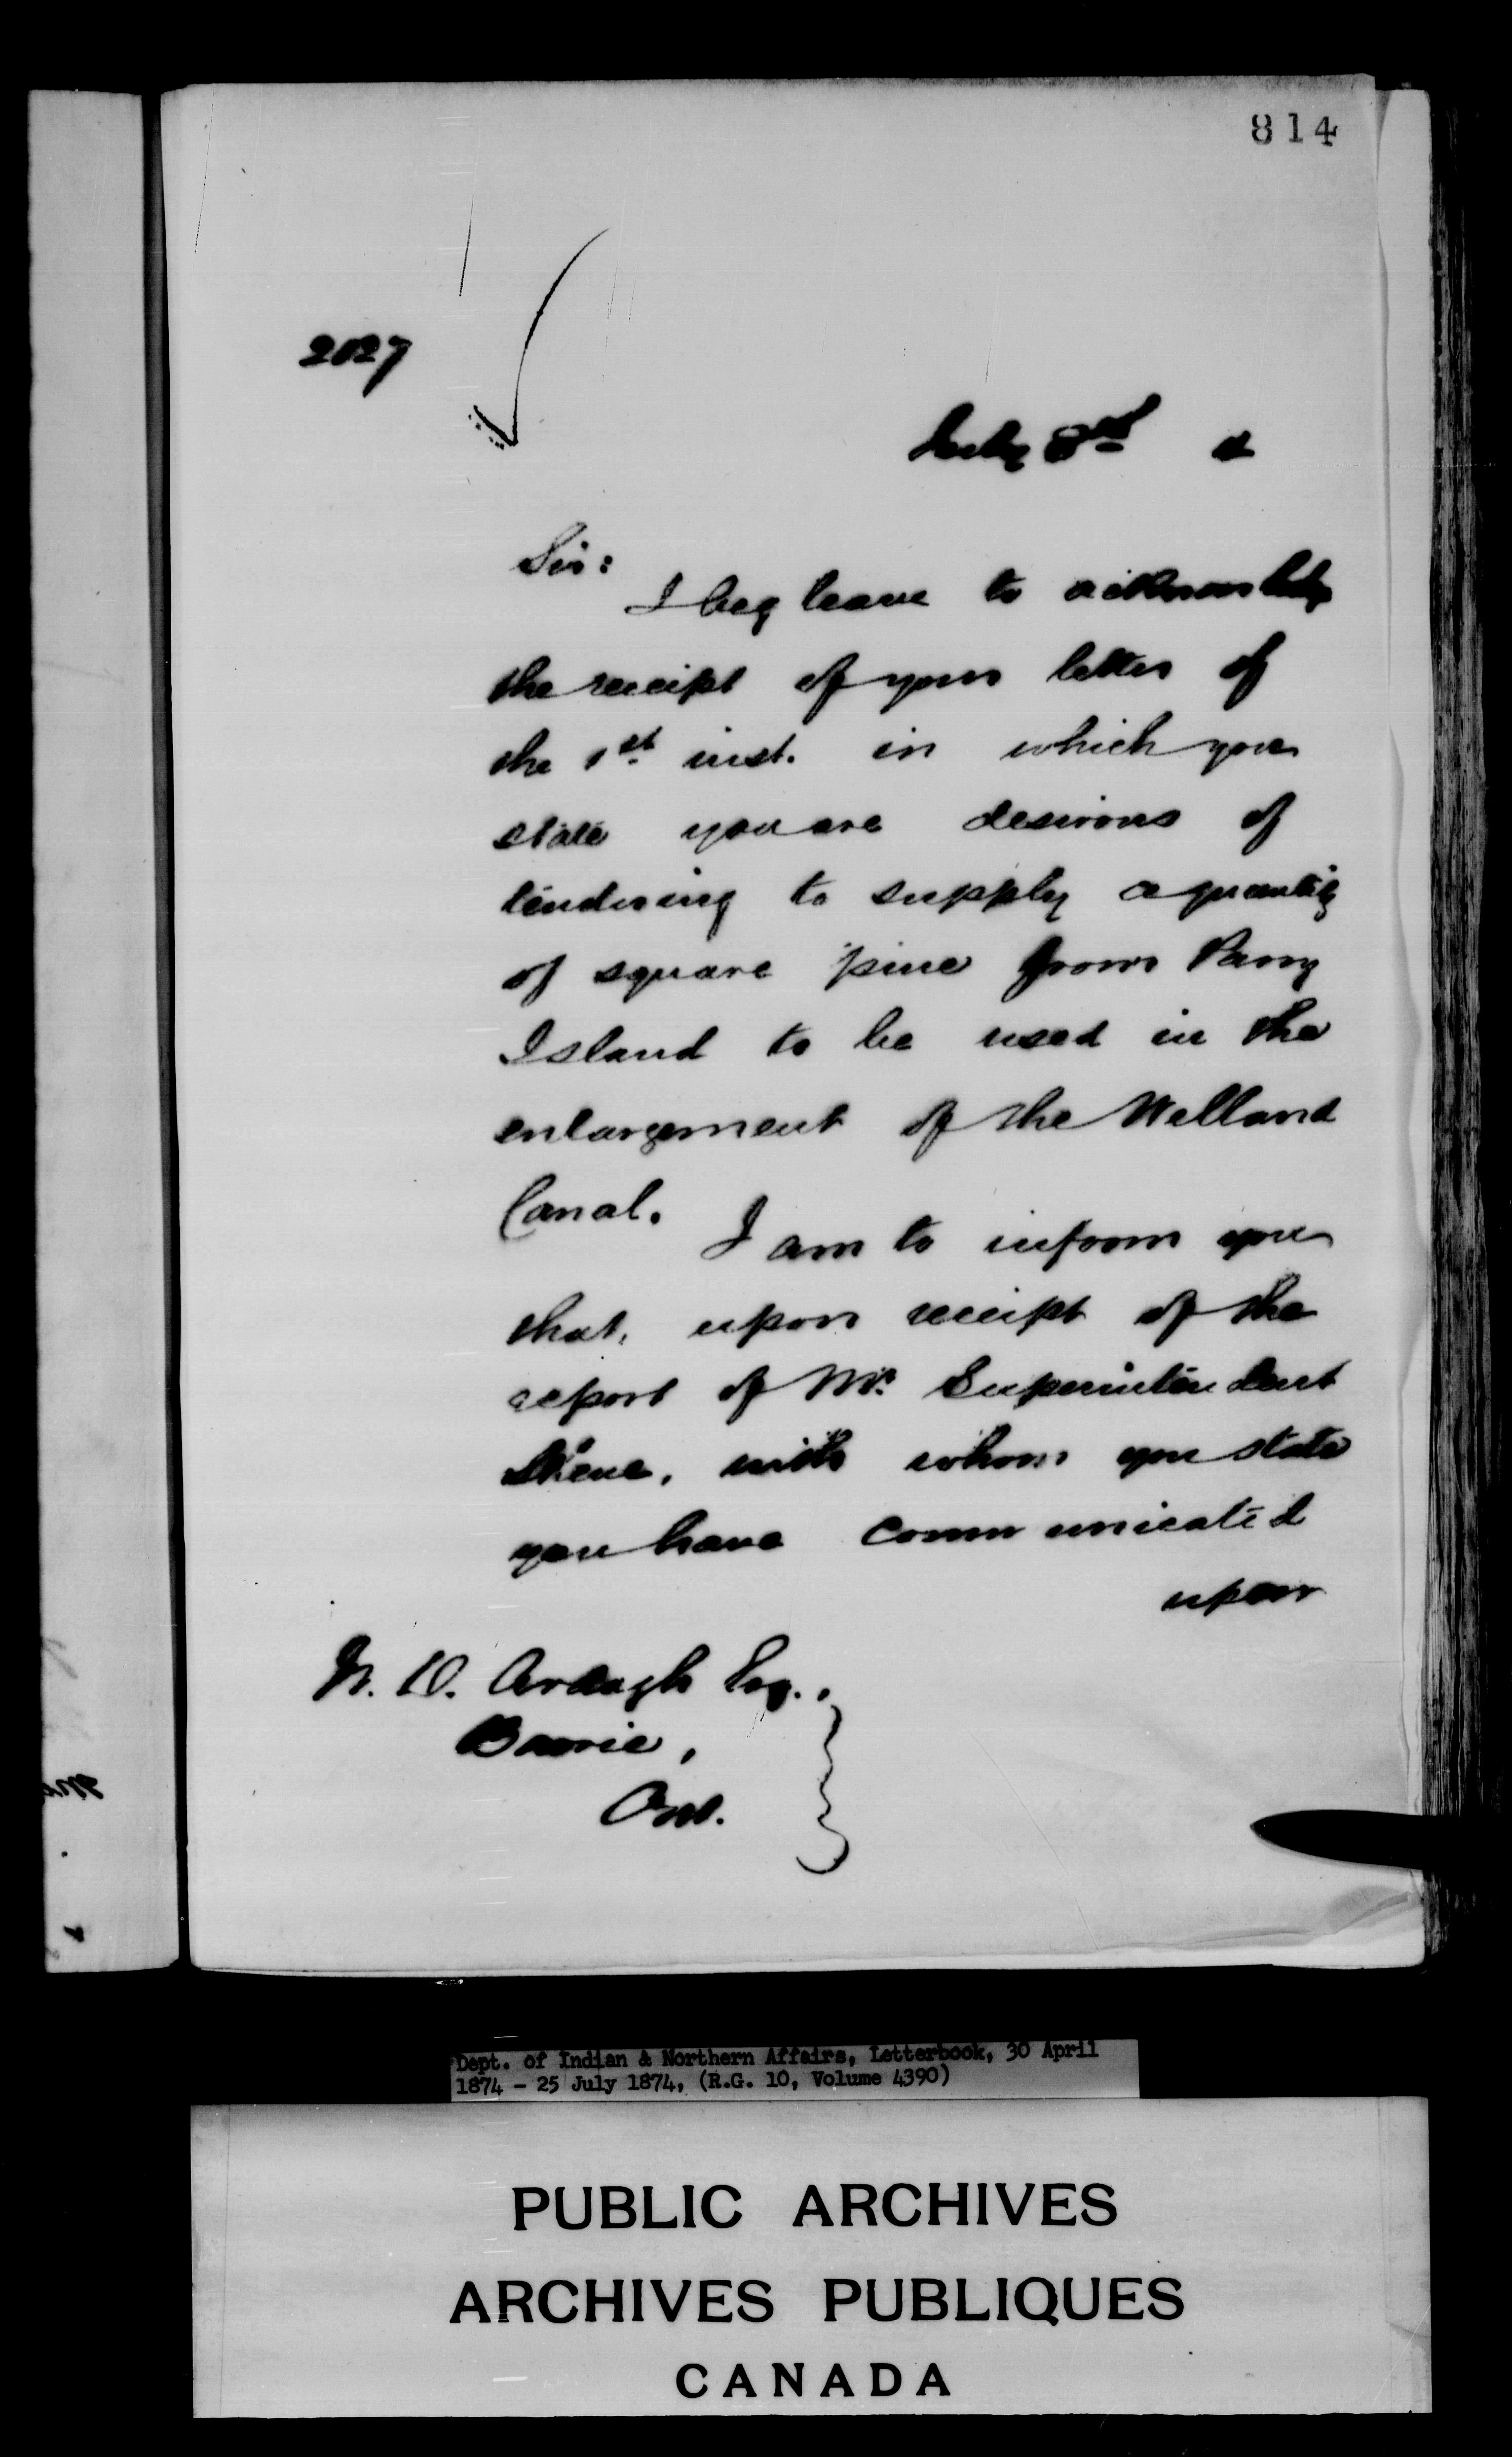 814
2027
July 3rd 4
Sir:
I beg leave to acknowledge
the receipt of your letter of
the 1st inst. in which you
state you are desirous of
tendering to supply a quantity
of square pine from Parry
Island to be used in the
enlargement of the Welland
Canal.
I am to inform you
that, upon receipt of the
report of Mr. Superintendent
Skene, with whom you state
you have communicated
upon
W. D. Ardagh Esq.,
Barrie,
Ont.
Dept. of Indian & Northern Affairs, Letterbook, 30 April
1874 - 25 July 1874, (R.G. 10, Volume 4390)
PUBLIC ARCHIVES
ARCHIVES PUBLIQUES
CANADA